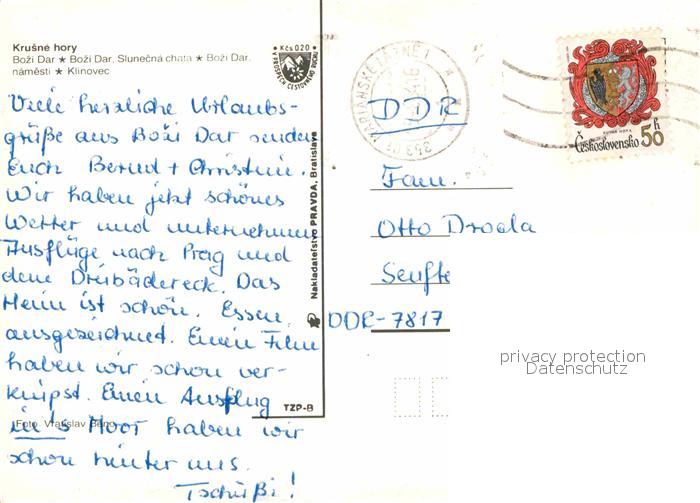 Krušné hory
Boží Dar ★ Boží Dar, Slunečná chata ★ Boží Dar,
náměstí ★ Klínovec
Kčs 0,20
Viele herzliche Urlaubs-
grüße aus Boži Dar senden
Euch Bernd + Christin.
Wir haben jetzt schönes
Wetter und unternehmen
Ausflüge nach Prag und
dem Dreibädereck. Das
Heim ist schön. Essen
ausgezeichnet. Einen Film
haben wir schon ver-
knipst. Einen Ausflug
in's Moor haben wir
schon hinter uns.
Tschüßi!
Foto: Vratislav
TZP-B
Nakladatelstvo PRAVDA, Bratislava
MARIÁNSKÉ LÁZNĚ 1
353 01
Československo 50 h
DDR
Fam.
Otto
Senfte
DDR-7817
privacy protection
Datenschutz